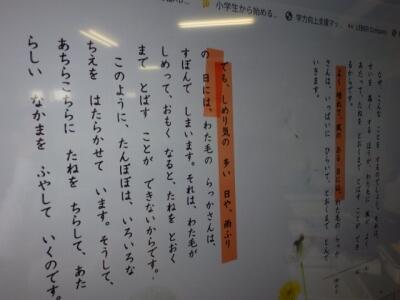 小学生から始める…
学力向上支援マッ…
LEBER Company
よく 晴れて、風の ある 日には、わた毛の らっか
さんは、いっぱいに ひらいて、とおくまで とんで
いきます。
でも、しめり気の 多い 日や、雨ふり
の 日には、わた毛の らっかさんは、
すぼんで しまいます。それは、わた毛が
しめって、おもく なると、たねを とおく
まで とばす ことが できないからです。
このように、たんぽぽは、いろいろな
ちえを はたらかせて います。そうして、
あちらこちらに たねを ちらして、あた
らしい なかまを ふやして いくのです。